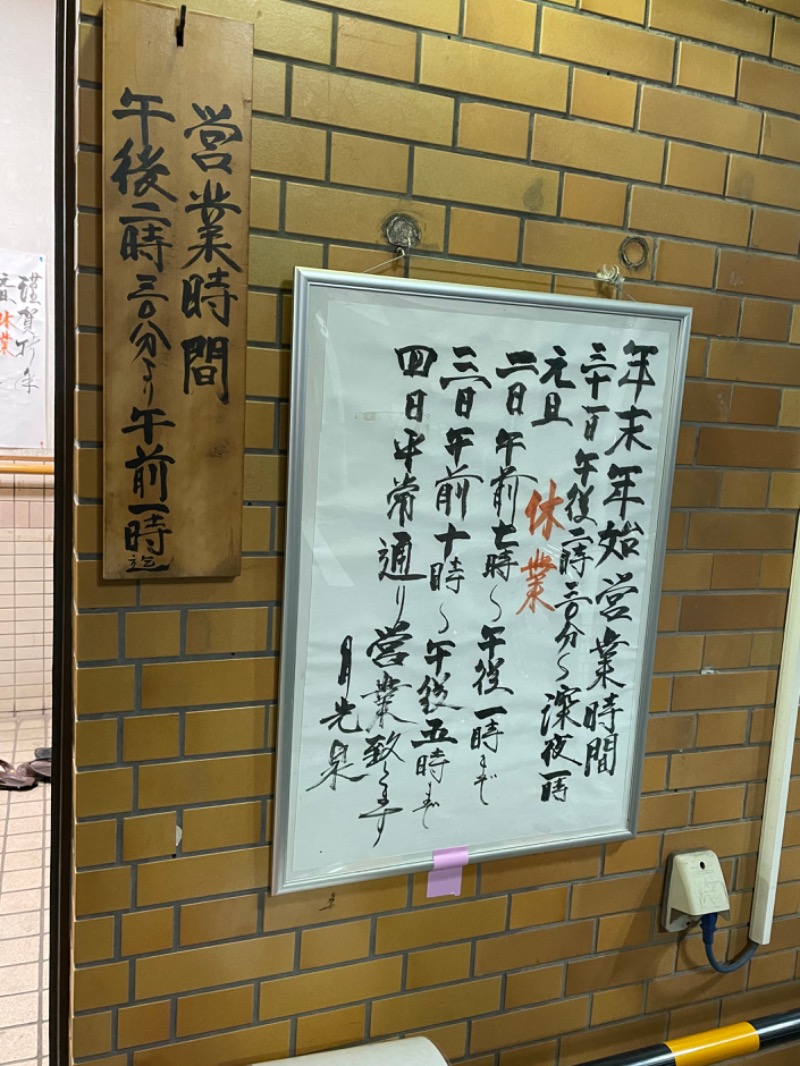 営業時間
午後二時三〇分より午前一時迄
年末年始営業時間
三十一日午後二時三〇分～深夜一時
元旦 休業
二日 午前七時～午後一時まで
三日 午前十時～午後五時まで
四日 平常通り営業致します
月光泉
謹賀新年
休業